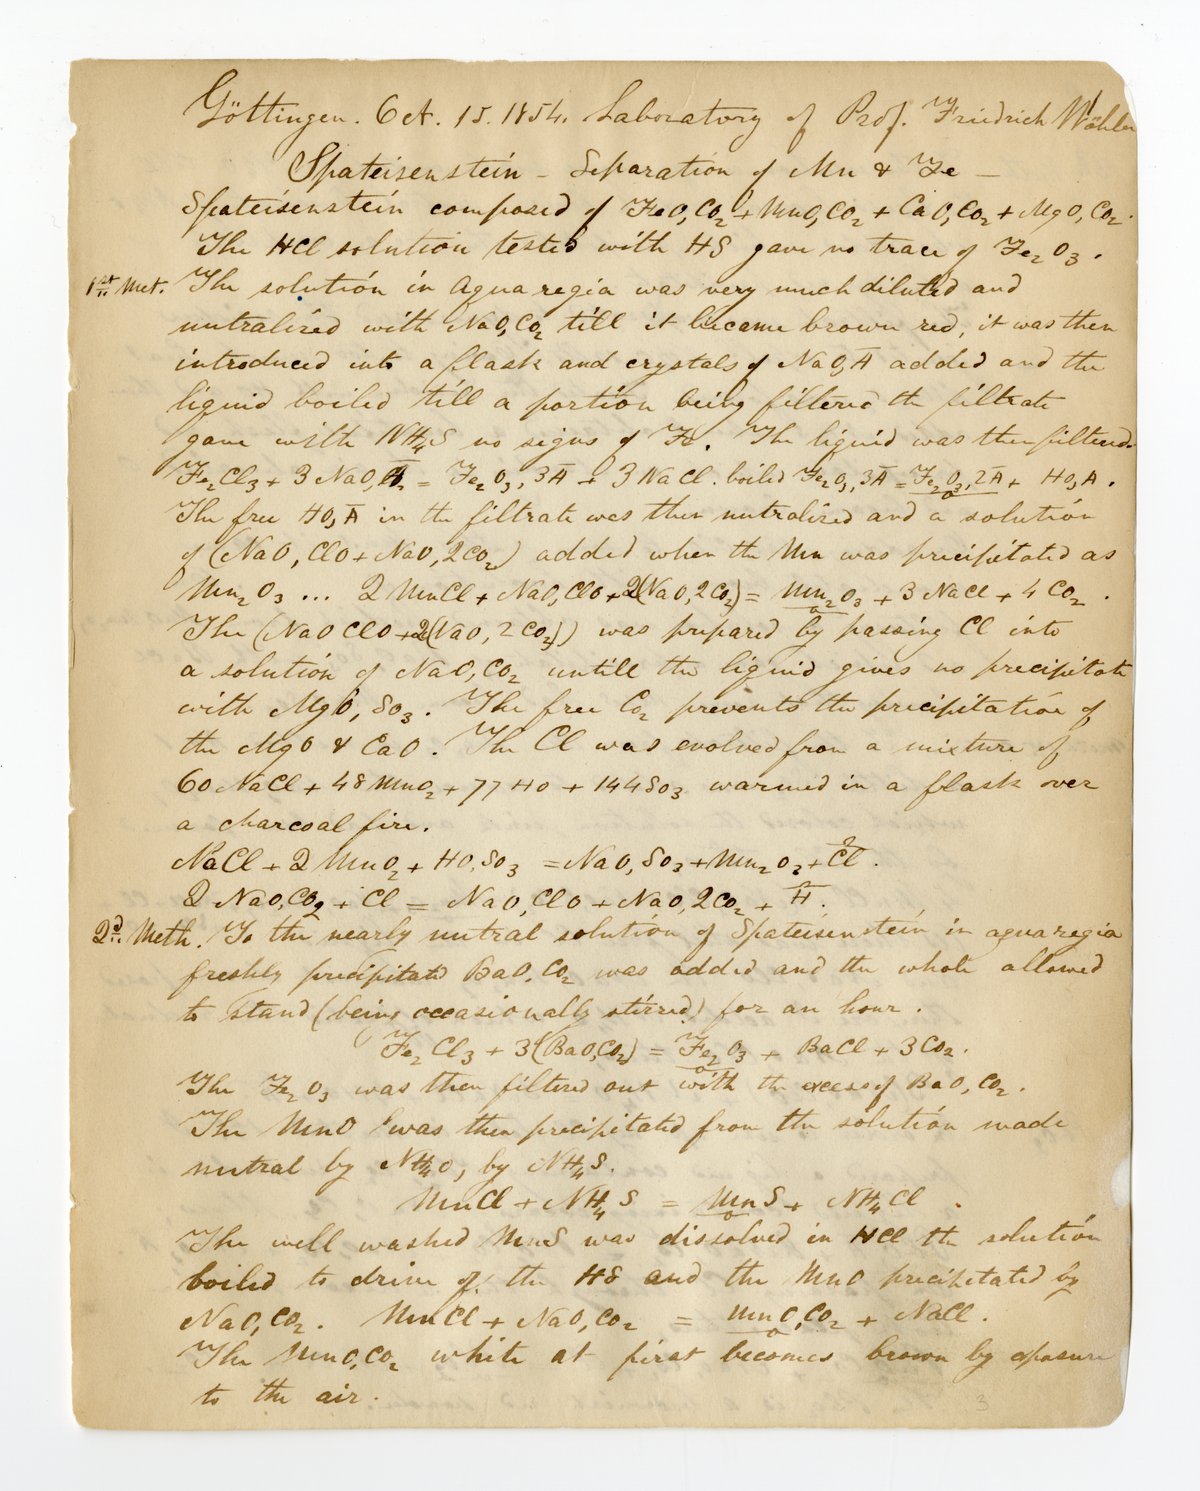 Göttingen. Oct. 15. 1854. Laboratory of Prof. Friedrich Wöhler
Spateisenstein – Separation of Mn & Fe –
Spateisenstein composed of FeO,CO2 + MnO,CO2 + CaO,CO2 + MgO,CO2.
The HCl solution tested with HS gave no trace of Fe2O3.
1st Met. The solution in Aqua regia was very much diluted and
nutralised with NaO,CO2 till it became brown red, it was then
introduced into a flask and crystals of NaO,Ā added and the
liquid boiled till a portion being filtered the filtrate
gave with NH4S no signs of Fe. The liquid was then filtered.
Fe2Cl3 + 3 NaO,Ā = Fe2O3,3Ā + 3 NaCl. boiled Fe2O3,3Ā = Fe2O3,2Ā + HO,Ā.
The free HO,Ā in the filtrate was then nutralised and a solution
of (NaO,ClO + NaO,2CO2) added when the Mn was precipitated as
Mn2O3 ... 2 MnCl + NaO,ClO + 2(NaO,2CO2) = Mn2O3 + 3 NaCl + 4 CO2.
The (NaOClO + 2(NaO,2CO2)) was prepared by passing Cl into
a solution of NaO,CO2 untill the liquid gives no precipitate
with MgO,SO3. The free CO2 prevents the precipitation of
the MgO & CaO. The Cl was evolved from a mixture of
60 NaCl + 48 MnO2 + 77 HO + 144 SO3 warmed in a flask over
a charcoal fire.
NaCl + 2 MnO2 + HO,SO3 = NaO,SO3 + Mn2O3 + Cl.
2 NaO,CO2 + Cl = NaO,ClO + NaO,2CO2 + H.
2d Meth. To the nearly nutral solution of Spateisenstein in aqua regia
freshly precipitated BaO,CO2 was added and the whole allowed
to stand (being occasionally stirred) for an hour.
Fe2Cl3 + 3(BaO,CO2) = Fe2O3 + BaCl + 3CO2.
The Fe2O3 was then filtered out with the excess of BaO,CO2.
The MnO was then precipitated from the solution made
nutral by NH4O, by NH4S.
MnCl + NH4S = MnS + NH4Cl.
The well washed MnS was dissolved in HCl the solution
boiled to drive of the HS and the MnO precipitated by
NaO,CO2. MnCl + NaO,CO2 = MnO,CO2 + NaCl.
The MnO,CO2 white at first becomes brown by exposure
to the air.
3